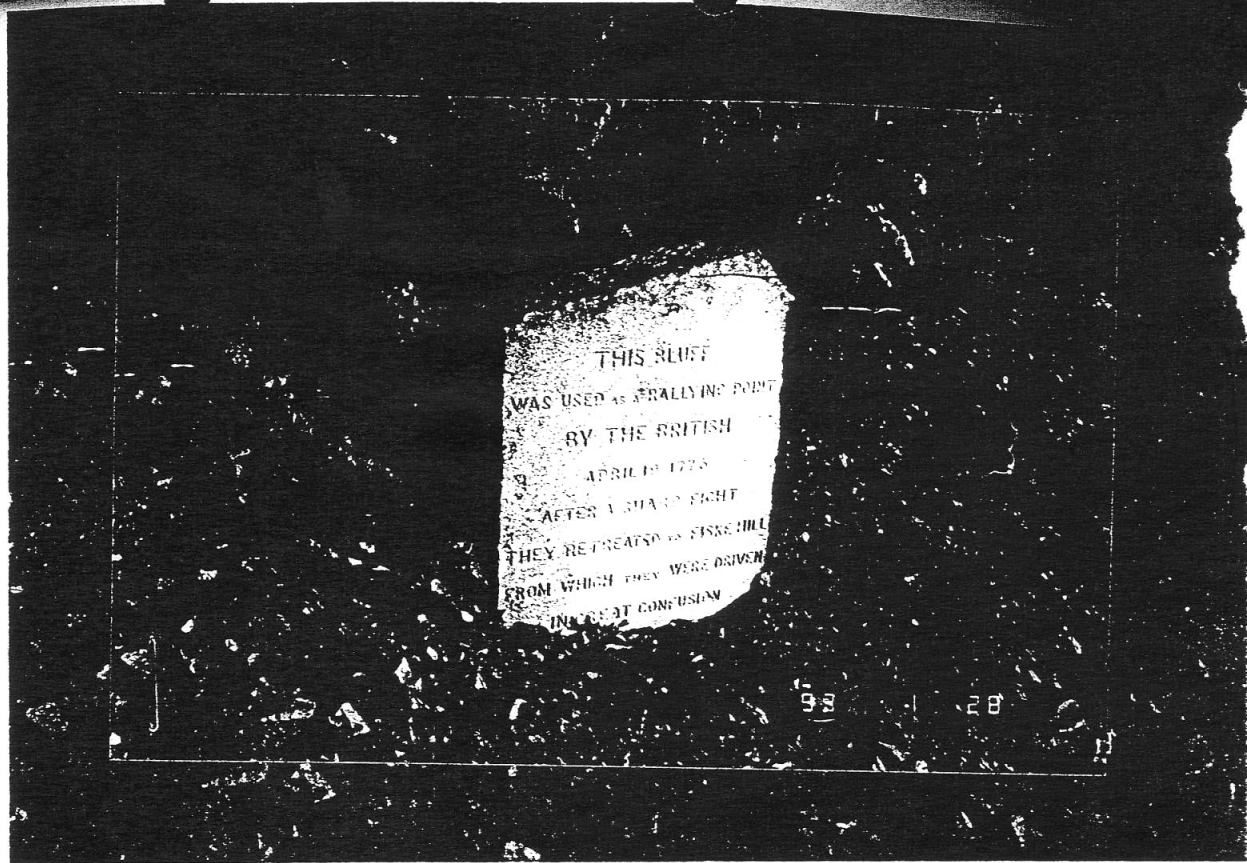 THIS BLUFF
WAS USED AS A RALLYING POINT
BY THE BRITISH
APRIL 19 1775
AFTER A SHARP FIGHT
THEY RETREATED TO FISKE HILL
FROM WHICH THEY WERE DRIVEN
IN GREAT CONFUSION
93 1 28